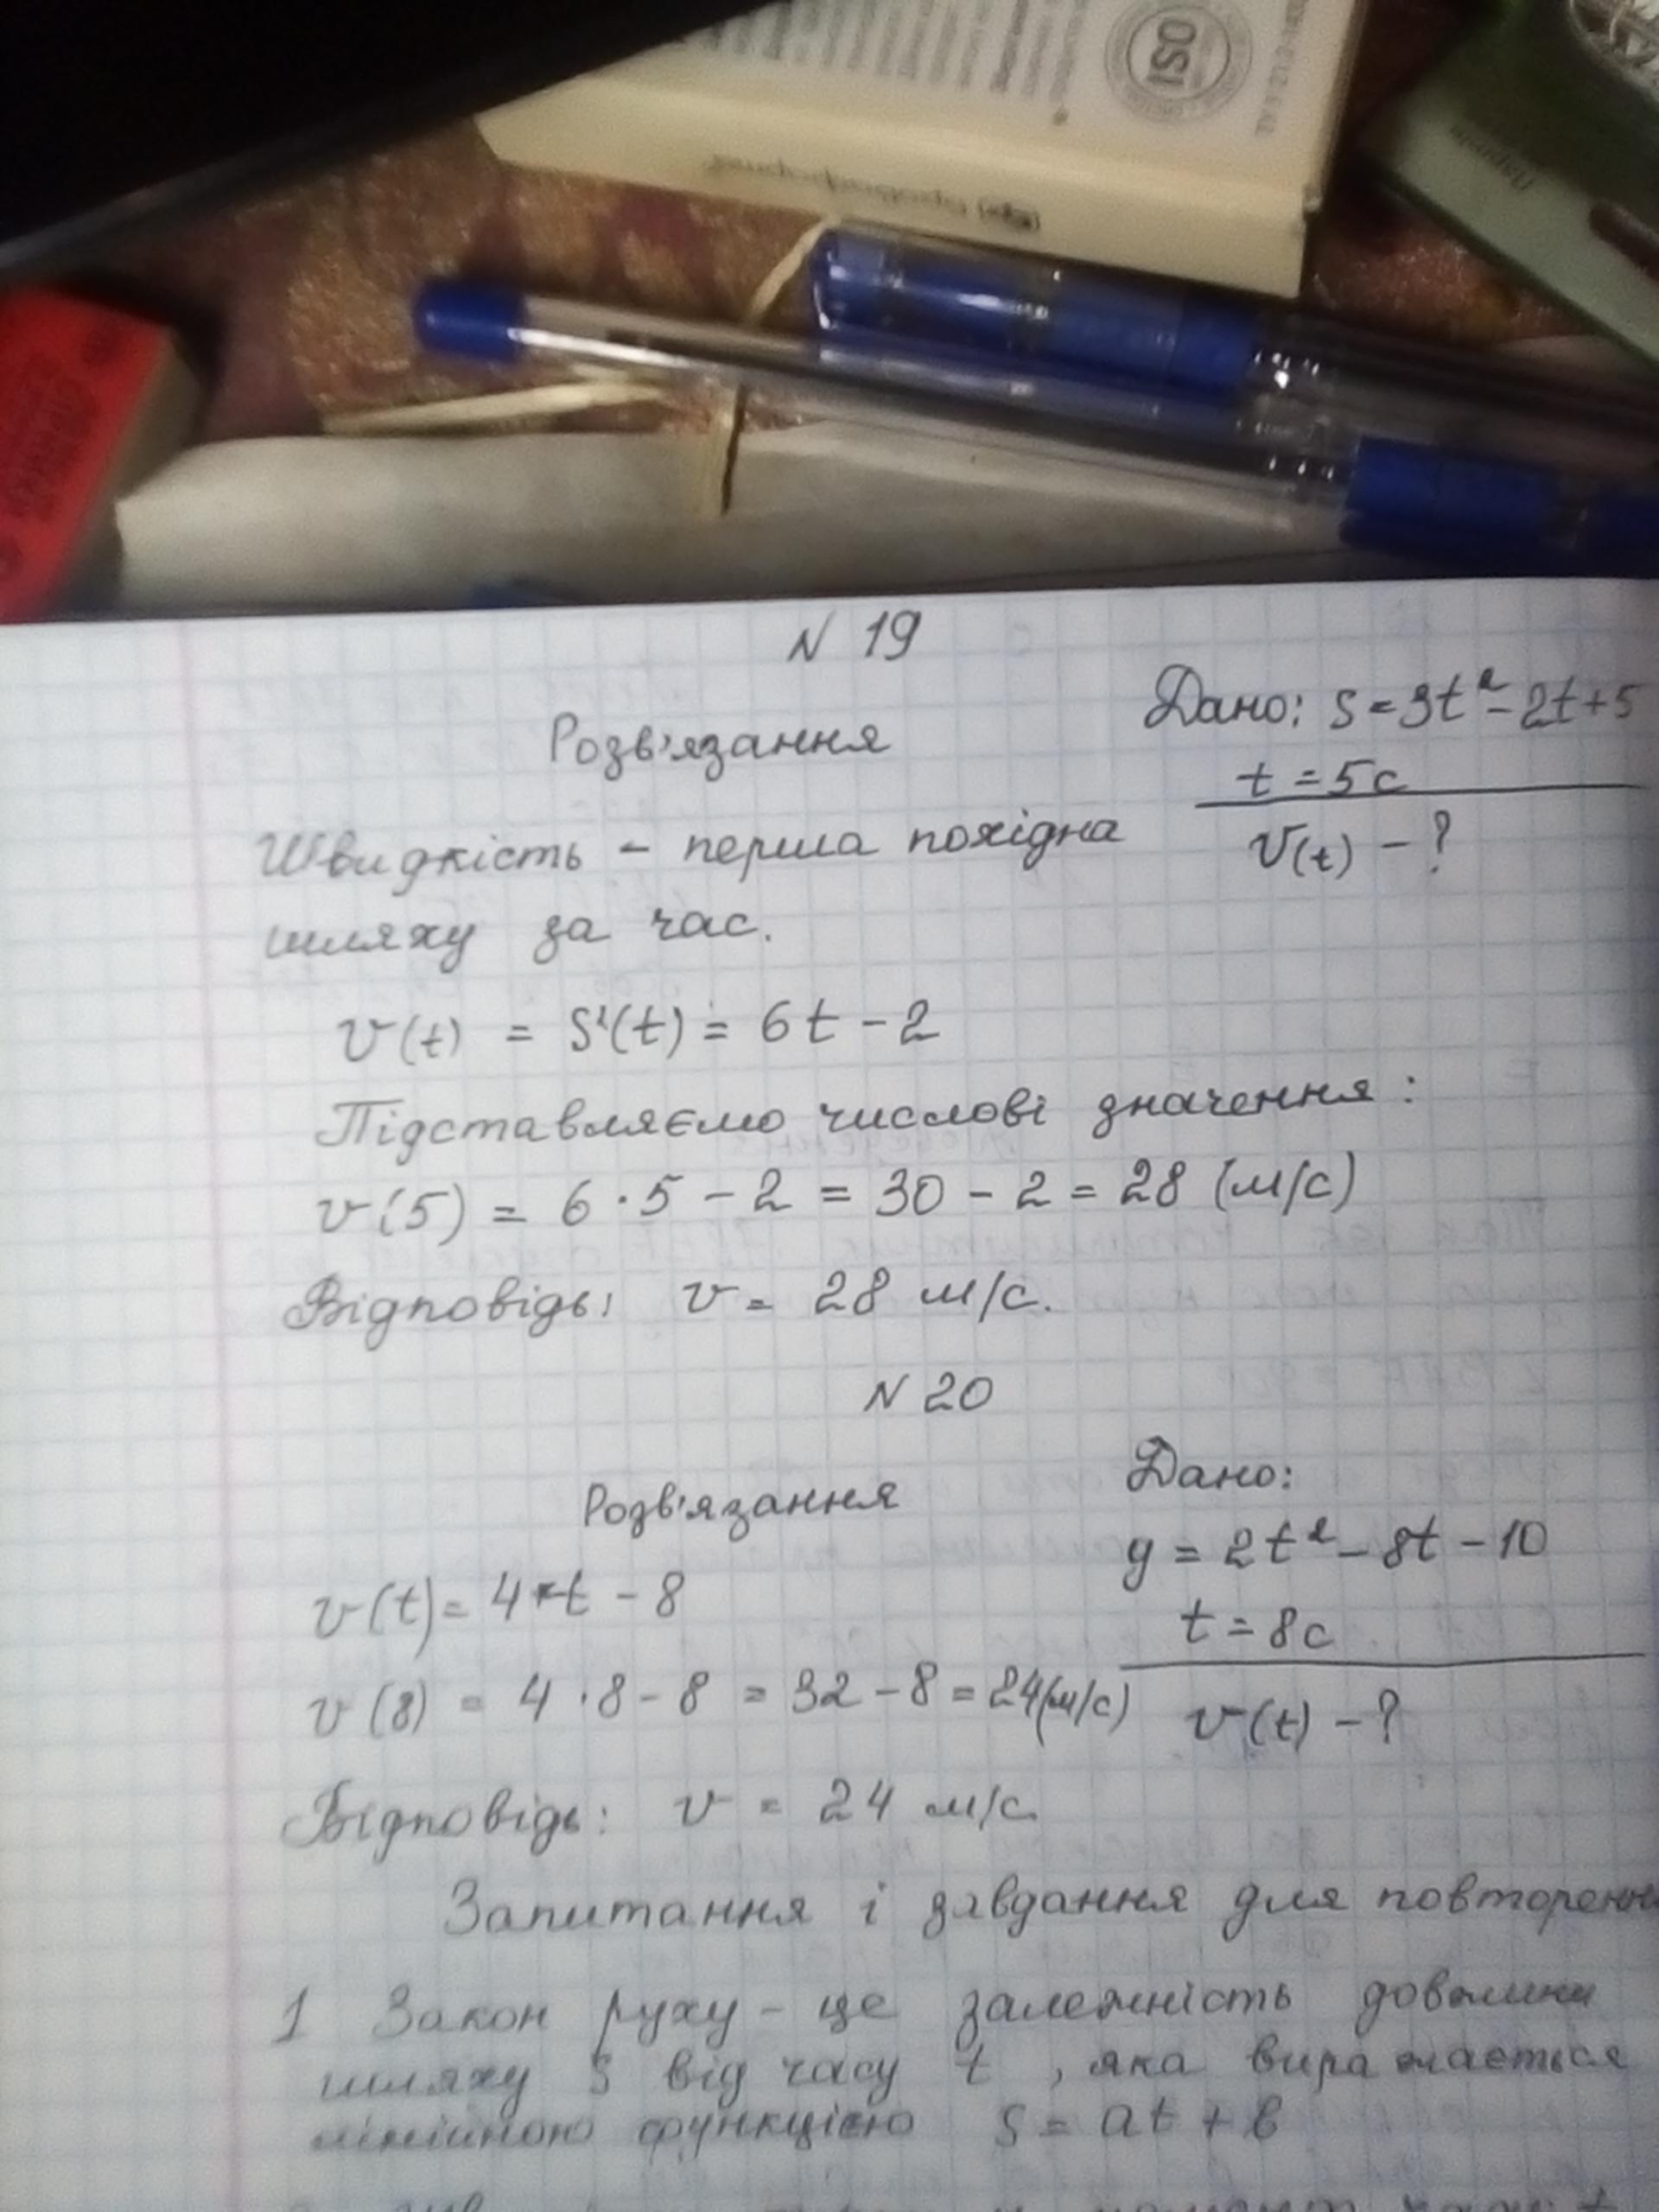 ISO
N 19
Дано: S = 3t² - 2t + 5
Розв'язання
t = 5c
Швидкість - перша похідна
V(t) - ?
шляху за час.
v(t) = S'(t) = 6t - 2
Підставляємо числові значення:
v(5) = 6 · 5 - 2 = 30 - 2 = 28 (м/с)
Відповідь: v = 28 м/с.
N 20
Дано:
Розв'язання
y = 2t² - 8t - 10
v(t) = 4t - 8
t = 8c
v(8) = 4 · 8 - 8 = 32 - 8 = 24(м/с)
v(t) - ?
Відповідь: v = 24 м/с
Запитання і завдання для повторенн
1 Закон руху - це залежність довжини
шляху S від часу t, яка виражається
лінійною функцією S = at + b